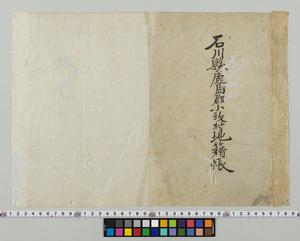 石川縣鹿島郡小牧村地籍帳